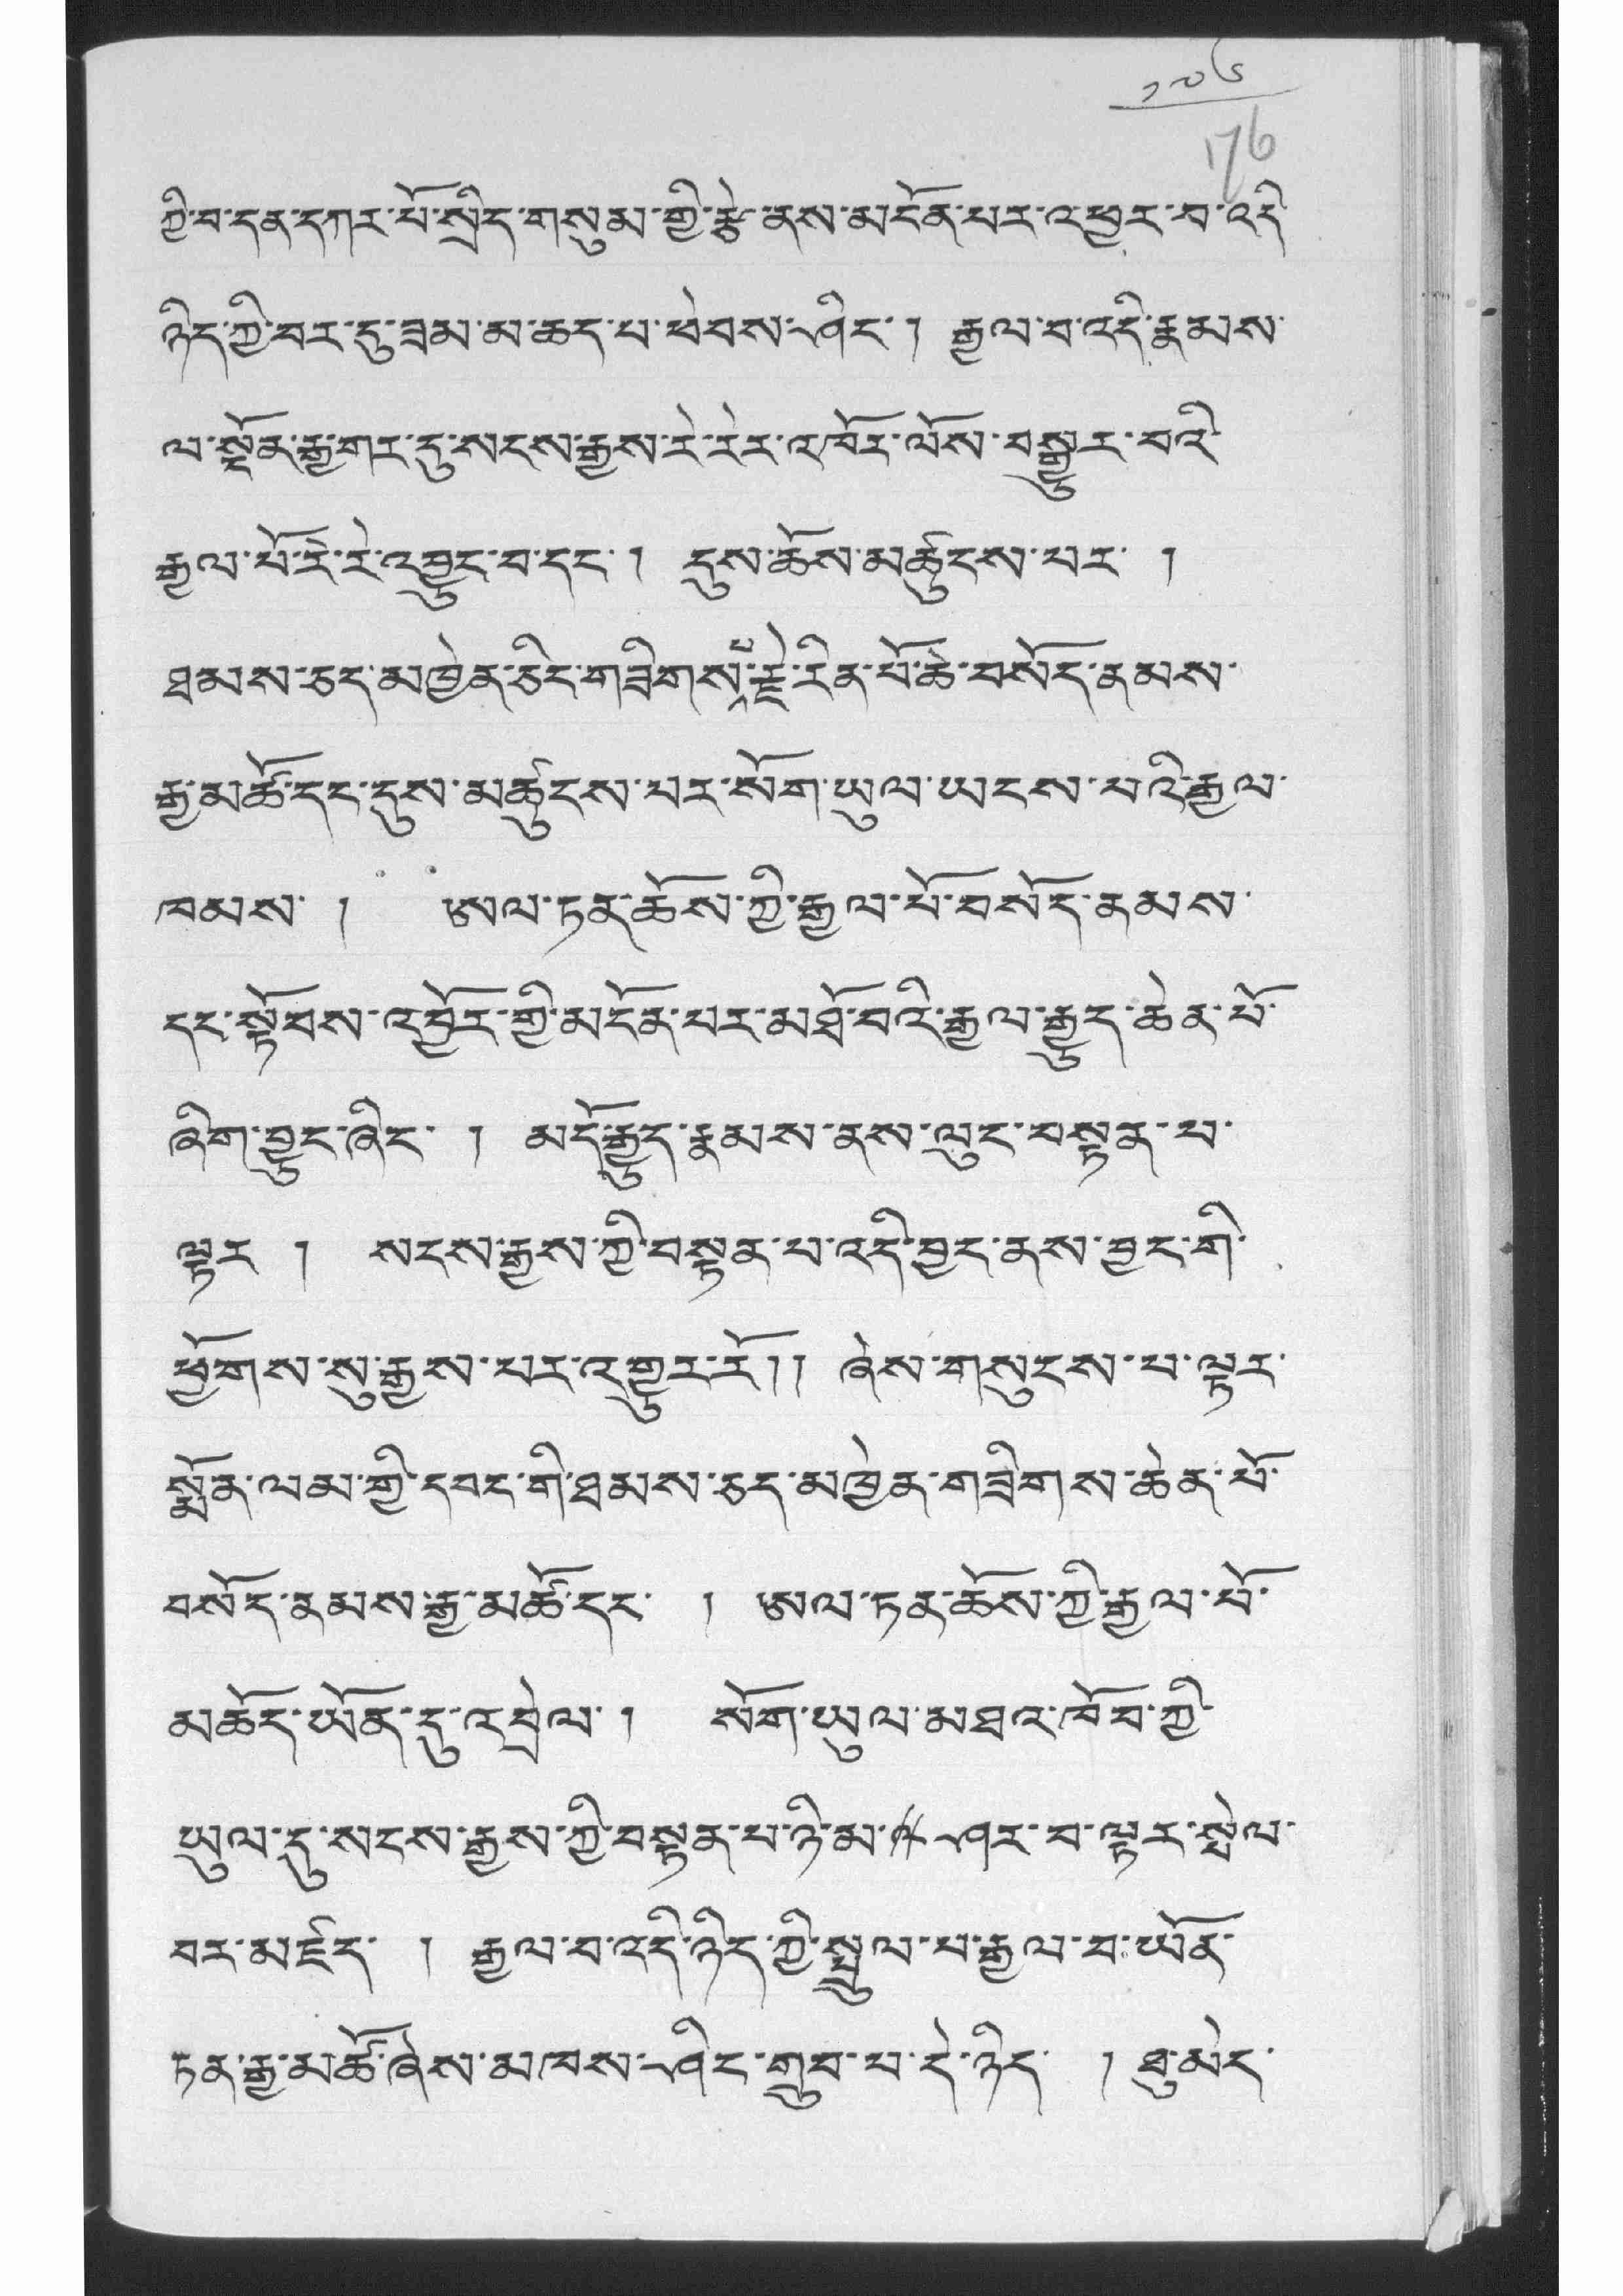 ༡༧༦
176
ཀྱི་བ་དན་དཀར་པོ་སྲིད་གསུམ་གྱི་རྩེ་ནས་མངོན་པར་འཕྱར་བ་འདི
ཉིད་ཀྱི་བར་དུ་ཟམ་མ་ཆད་པ་ཕེབས་ཤིང་། རྒྱལ་བ་འདི་རྣམས་
ལ་སྔོན་རྒྱ་གར་དུ་སངས་རྒྱས་རེ་རེར་འཁོར་ལོས་བསྒྱུར་བའི
རྒྱལ་པོ་རེ་རེ་འབྱུང་བ་དང་། དུས་ཆོས་མཚུངས་པར་ །
ཐམས་ཅད་མཁྱེན་ཅིང་གཟིགས་པ་རྗེ་རིན་པོ་ཆེ་བསོད་ནམས་
རྒྱ་མཚོ་དང་དུས་མཚུངས་པར་སོག་ཡུལ་ཡངས་པའི་རྒྱལ་
ཁམས་ ། ཨལ་ཏན་ཆོས་ཀྱི་རྒྱལ་པོ་བསོད་ནམས་
དང་སྟོབས་འབྱོར་གྱི་མངོན་པར་མཐོ་བའི་རྒྱལ་རྒྱུད་ཆེན་པོ་
ཞིག་བྱུང་ཞིང་ ། མདོ་རྒྱུད་རྣམས་ནས་ལུང་བསྟན་པ་
ལྟར ། སངས་རྒྱས་ཀྱི་བསྟན་པ་འདི་བྱང་ནས་བྱང་གི་
ཕྱོགས་སུ་རྒྱས་པར་འགྱུར་རོ།། ཞེས་གསུངས་པ་ལྟར་
སྨོན་ལམ་གྱི་དབང་གི་ཐམས་ཅད་མཁྱེན་གཟིགས་ཆེན་པོ་
བསོད་ནམས་རྒྱ་མཚོ་དང་ ། ཨལ་ཏན་ཆོས་ཀྱི་རྒྱལ་པོ་
མཆོད་ཡོན་དུ་འབྲེལ་ ། སོག་ཡུལ་མཐའ་ཁོབ་ཀྱི་
ཡུལ་དུ་སངས་རྒྱས་ཀྱི་བསྟན་པ་ཉི་མ་ཤར་བ་ལྟར་སྤེལ་
བར་མཛད་ ། རྒྱལ་བ་འདི་ཉིད་ཀྱི་སྤྲུལ་པ་རྒྱལ་བ་ཡོན་
ཏན་རྒྱ་མཚོ་ཞེས་མཁས་ཤིང་གྲུབ་པ་དེ་ཉིད་ ། ཐུ་མེད་